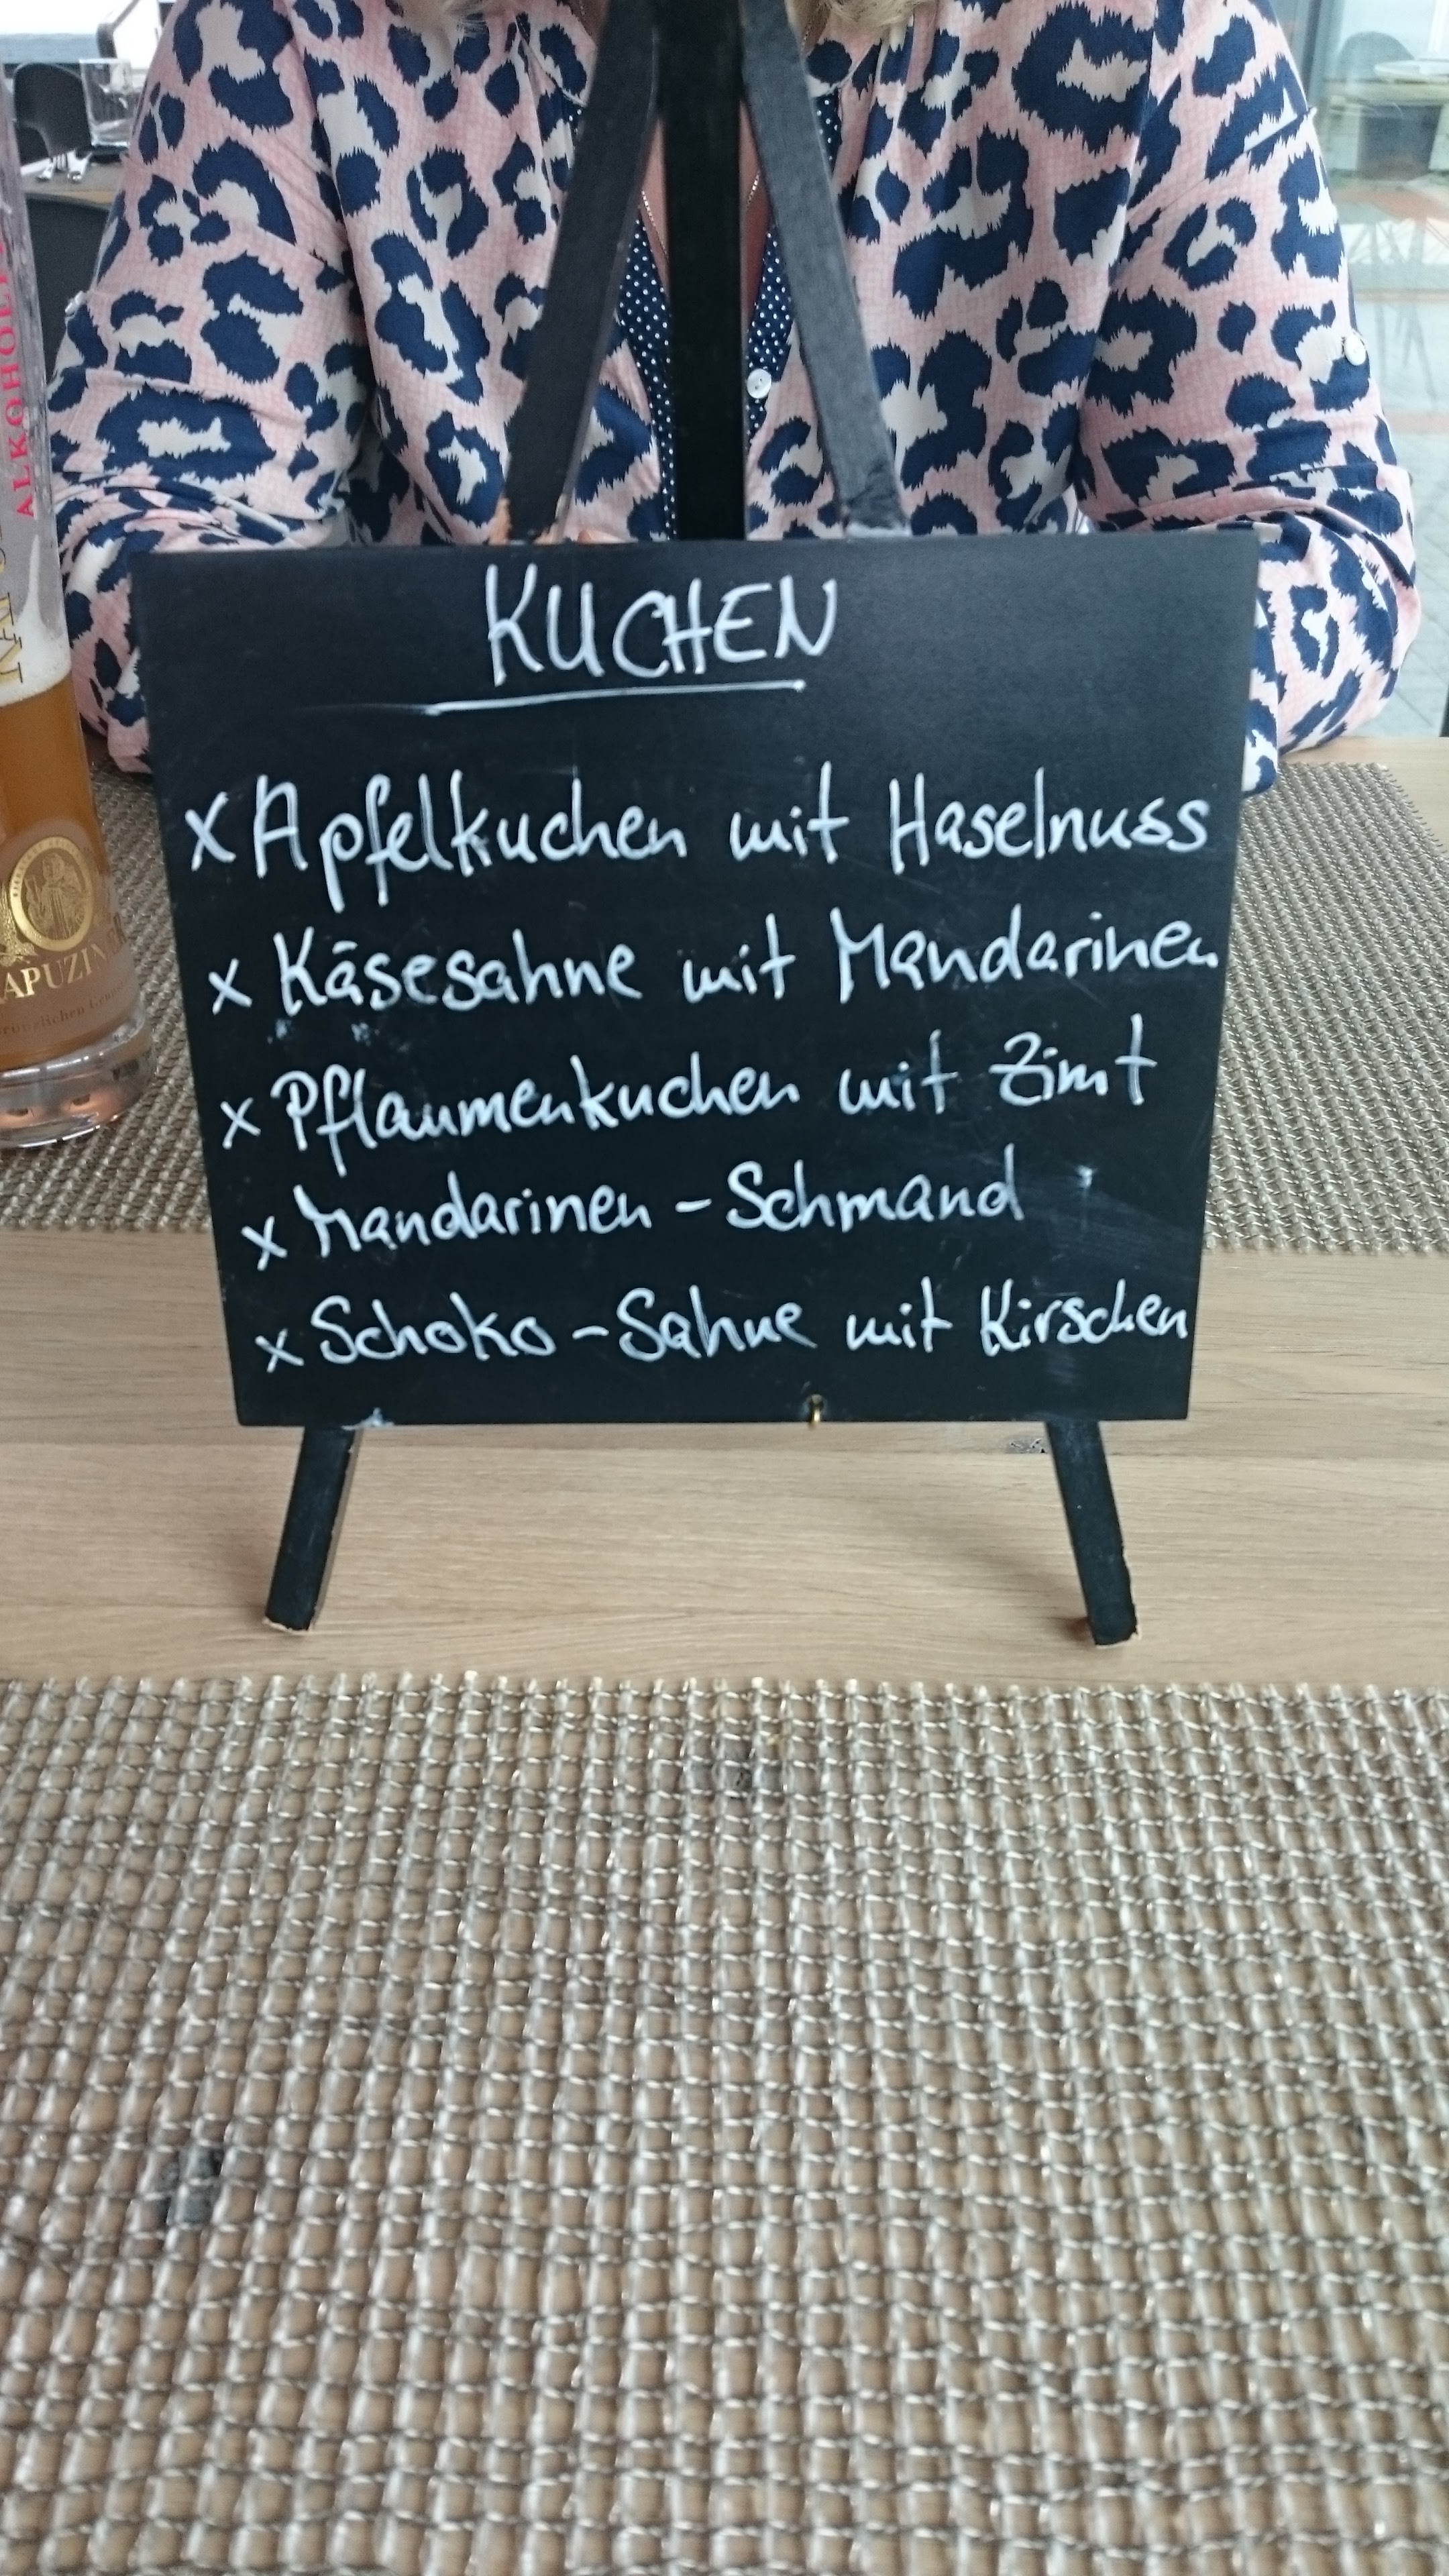 KUCHEN
x Apfelkuchen mit Haselnuss
x Käsesahne mit Mandarinen
x Pflaumenkuchen mit Zimt
x Mandarinen - Schmand
x Schoko - Sahne mit Kirschen
ALKOHOL
KAPUZIN